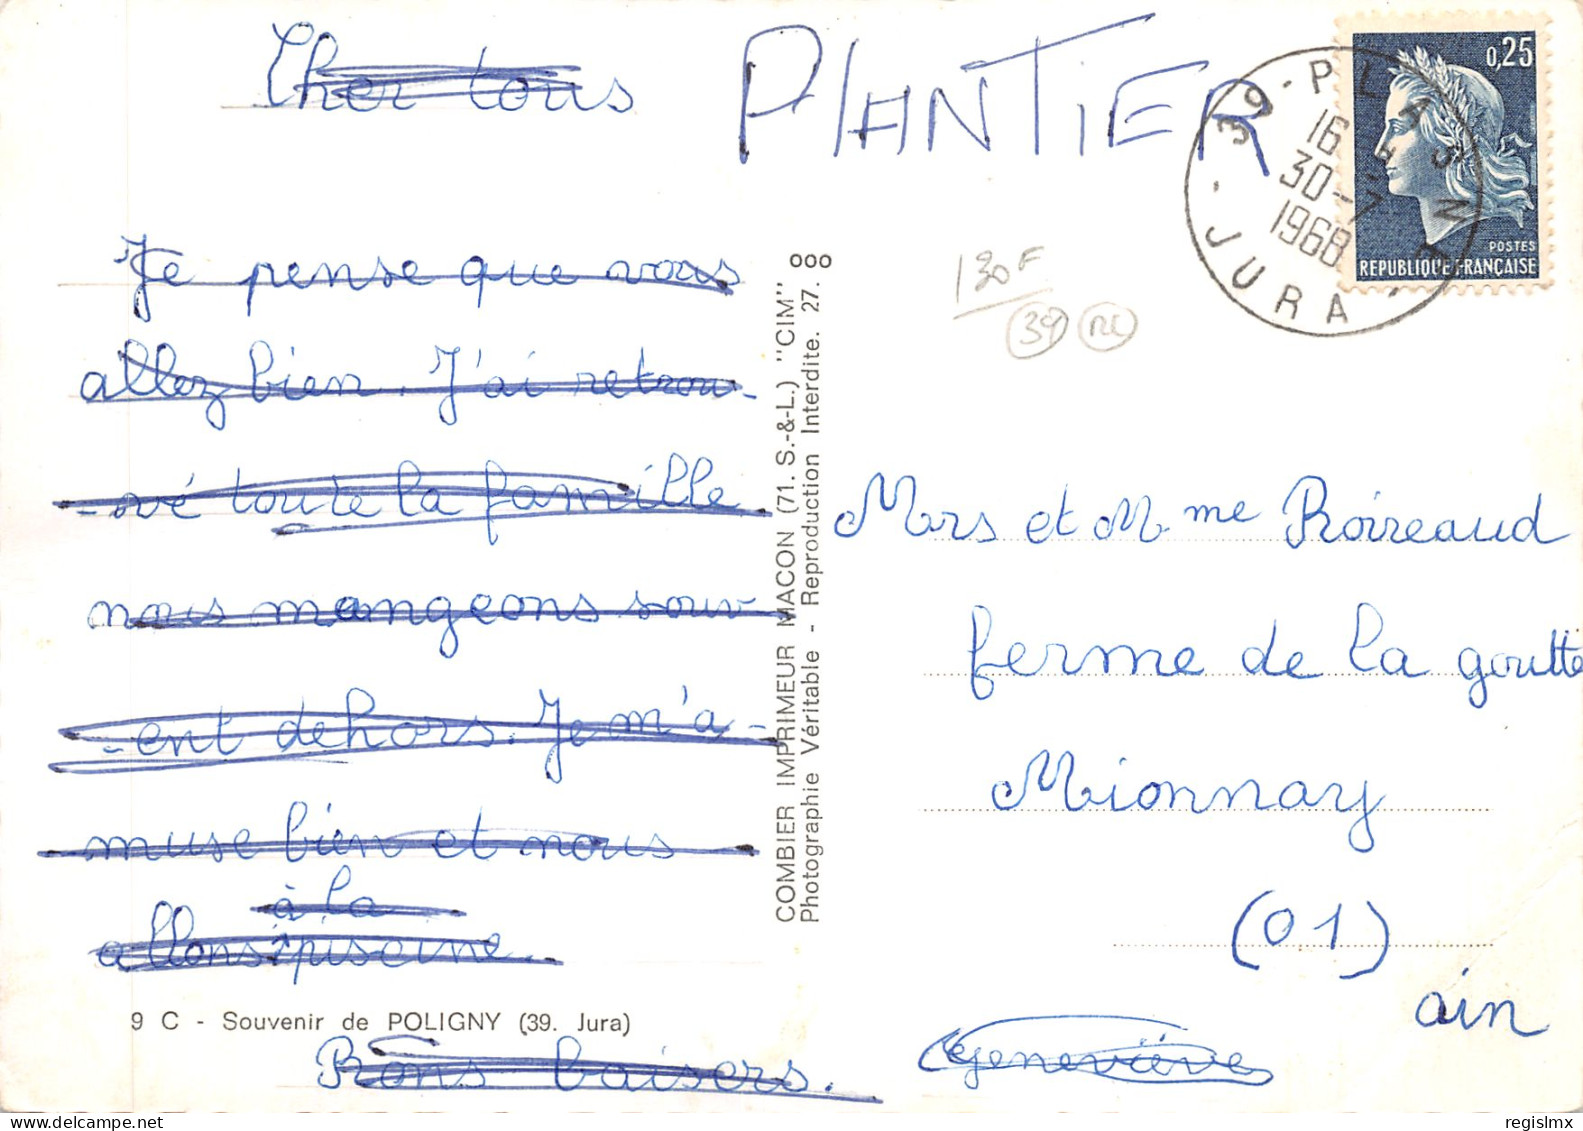 Cher tous
PLANTIER
Je pense que vous
allez bien. J'ai retrou-
-vé toute la famille
nous mangeons souv-
-ent dehors. Je m'a-
muse bien et nous
à la
allons piscine.
9 C - Souvenir de POLIGNY (39. Jura)
Bons baisers.
COMBIER IMPRIMEUR MACON (71. S.-&-L.) "CIM"
Photographie Véritable - Reproduction Interdite. 27. 8 ooo
0,25
POSTES
REPUBLIQUE FRANÇAISE
39 - PLASNE
16
30-7
1968
- JURA -
130F
39
Mrs et Mme Roireaud
ferme de la goutte
Mionnay
(01)
ain
Geneviève
regislmx